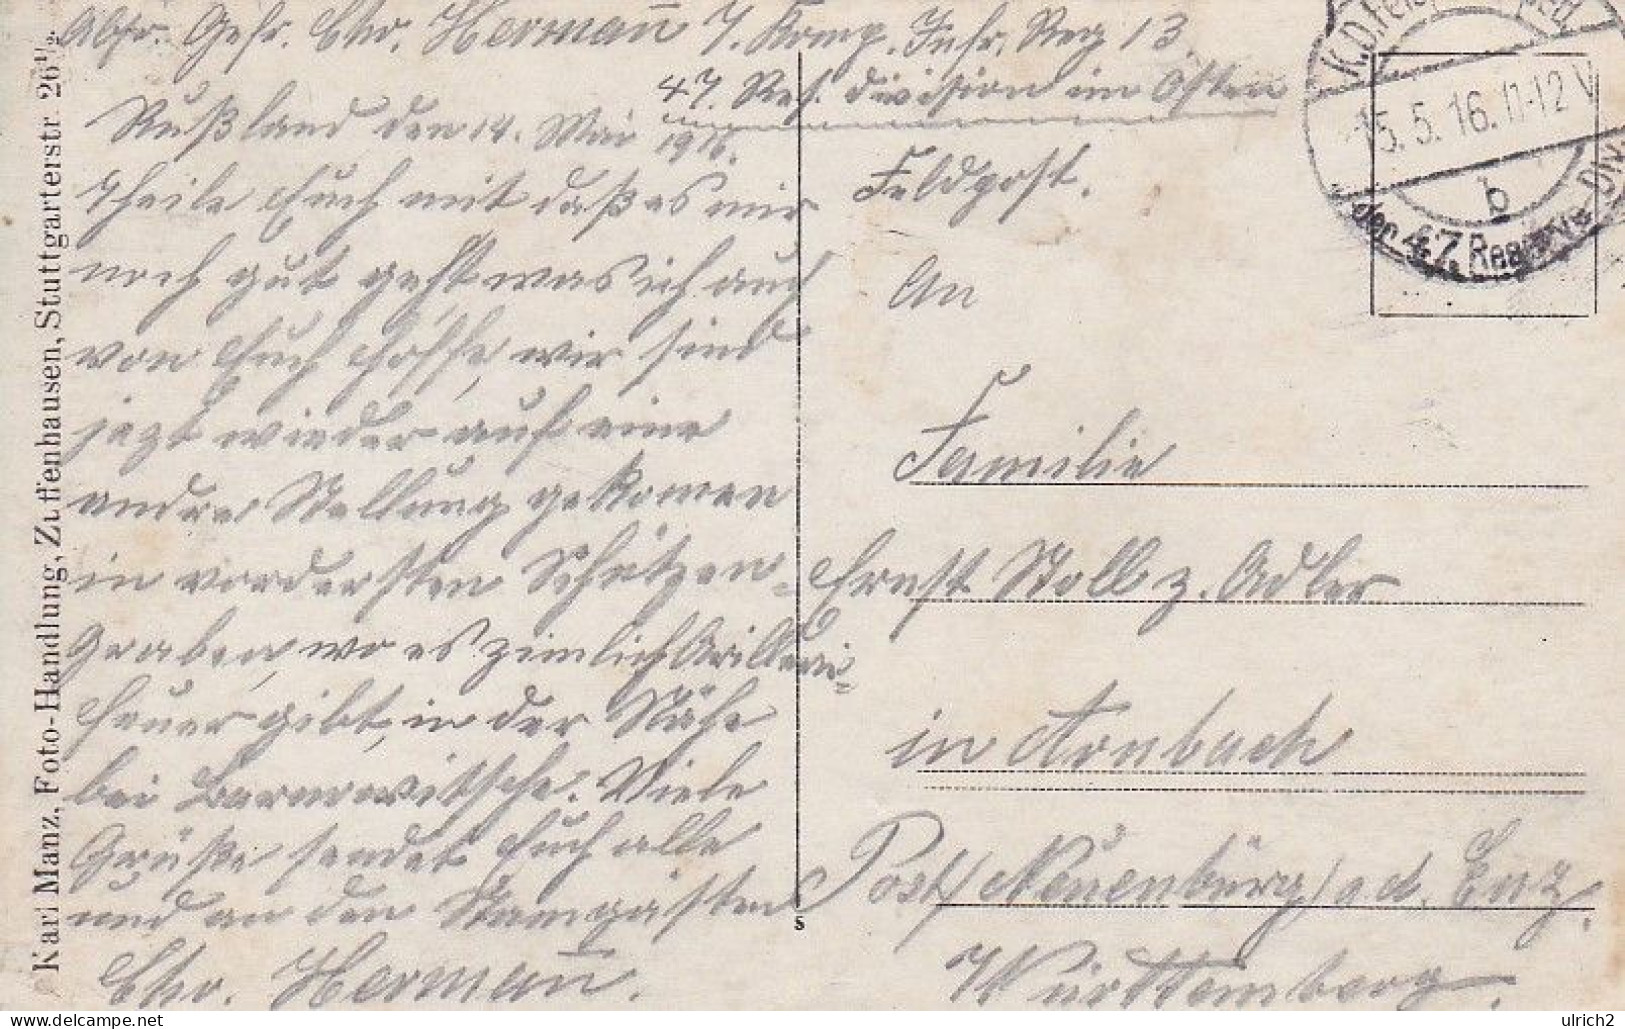 Abs. Gefr. Chr. Hermann 7. Komp. Infr. Reg 13.
47. Res. division im Osten
Rußland den 14. Mai 1916.
Theile Euch mit daß es mir
noch gut geht was ich auch
von Euch hoffe, wir sind
jezt wieder auf eine
andre Stellung gekomen
in vordersten Schützen-
Graben, wo es zimlich Artillerie-
feuer gibt, in der Nähe
bei Baranowitsche. Viele
Grüße sendet Euch alle
und an den Stamgästen
Chr. Hermann.
Feldpost.
An
Familie
Ernst Stoll z. Adler
in Arnbach
Post Neuenbürg a d. Enz.
Württemberg.
K.D. Feld
15.5.16. 11-12 V
b
der 47. Reserve-Div.
Karl Manz. Foto-Handlung, Zuffenhausen, Stuttgarterstr. 26 1/2
s
ulrich2